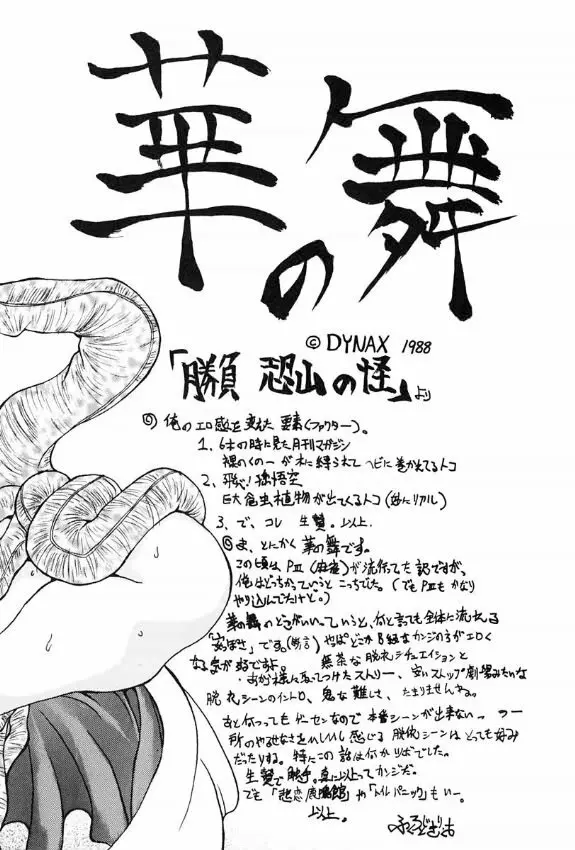 華の舞
© DYNAX 1988
「勝負 恐山の怪」より
◎俺のエロ感を変えた要素(ファクター)。
1、6才の時に見た月刊マガジン
裸のくの一が木に縛られてヘビに巻かれてるトコ
2、飛べ!孫悟空
巨大食虫植物が出てくるトコ(妙にリアル)
3、で、コレ 生贄。以上.
◎ま、とにかく華の舞です。
この頃はPⅢ(麻雀)が流行てた訳ですが、
俺はどっちかっていうとこっちでした。(でもPⅢもかなり
やり込んでたけど。)
華の舞のどこがいいっていうと、何と言っても全体に流れる
です。(断言)やっぱどこかB級なカンジの方がエロく
なる気が好ですよ。 無茶な脱衣シチュエイションと
取ってつけたストリー、安いストップ劇場みたいな
脱衣シーンのイントロ、鬼な難しさ、たまりませんなる。
あと何つってもゲーセンなので本番シーンが出来ないっつー
所のやるせなさをひしひし感じる脱衣シーンはとっても好み
だったりする。特にこの話は何かりばでした。
生贄で触手。真に以上ってカンジだ。
でも「館」や「パニック」もいー。
以上。